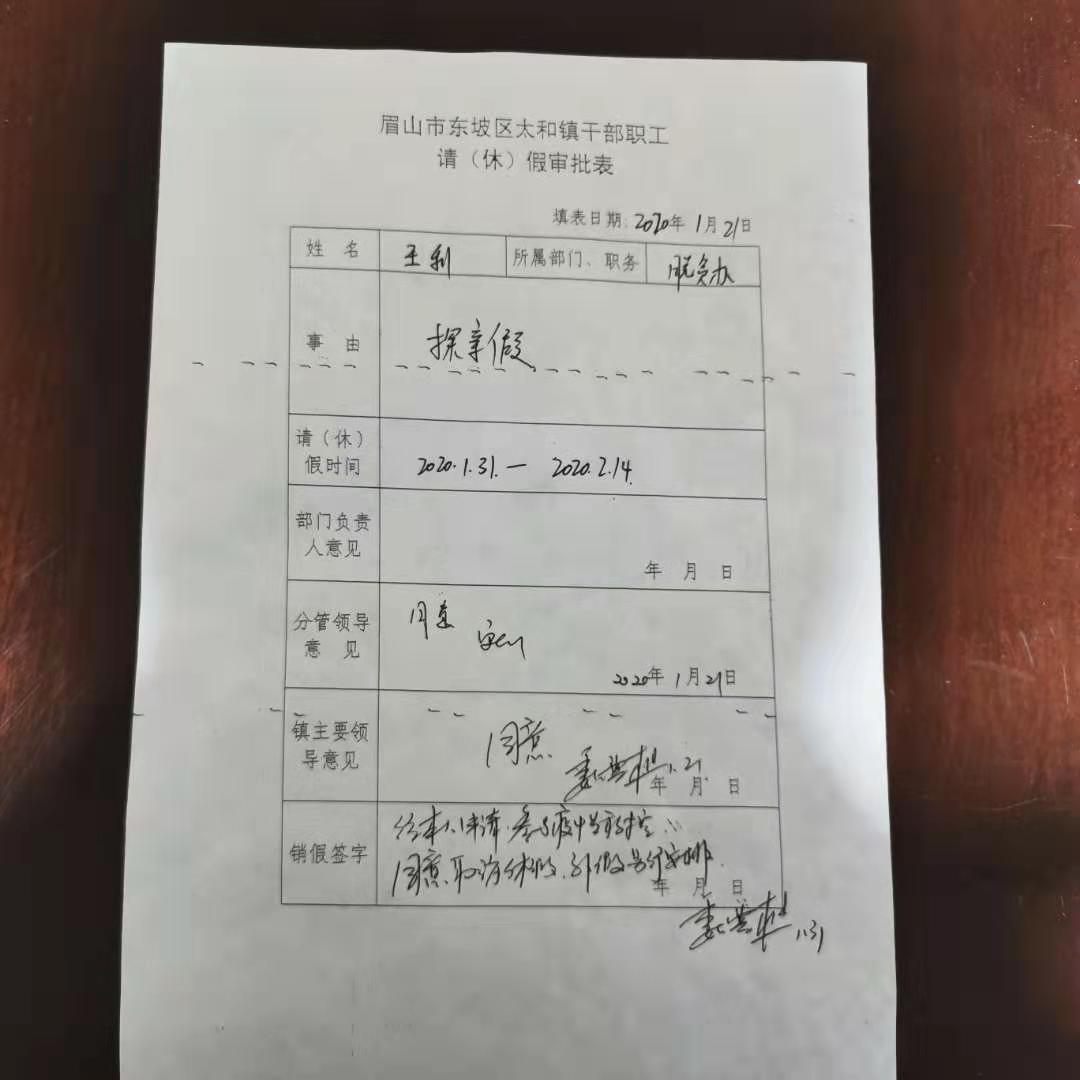 眉山市东坡区太和镇干部职工
请（休）假审批表
填表日期：2020年1月21日
姓 名 王利 所属部门、职务 脱贫办
事 由 探亲假
请（休）
假时间 2020.1.31.— 2020.2.14.
部门负责
人意见
年 月 日
分管领导
意 见 同意
2020年1月21日
镇主要领
导意见 同意
1.21.
年 月 日
销假签字 经本人申请，参与疫情防控，
同意取消休假，
年 月 日
1.31